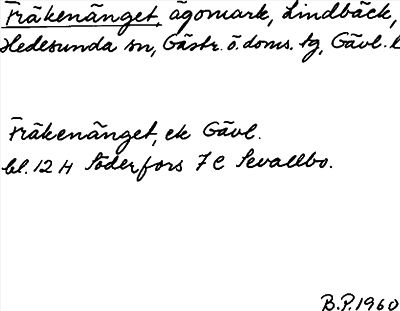 Fräkenänget, ägomark, Lindbäck,
Hedesunda sn, Gästr. ö. doms. tg, Gävl. l
Fräkenänget, ek Gävl.
bl. 12 H Söderfors 7 e Sevallbo.
B.P. 1960